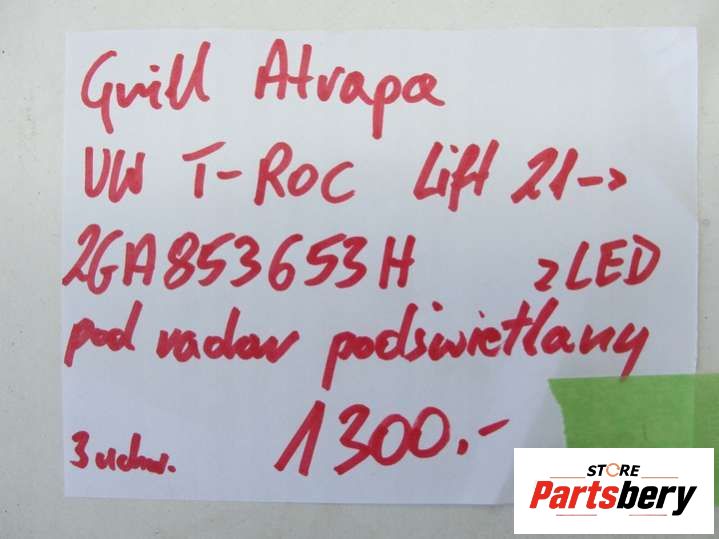 Grill Atrapa
VW T-ROC Lift 21->
2GA853653H z LED
pod radar podświetlany
1300.-
3 uchw.
STORE
Partsbery